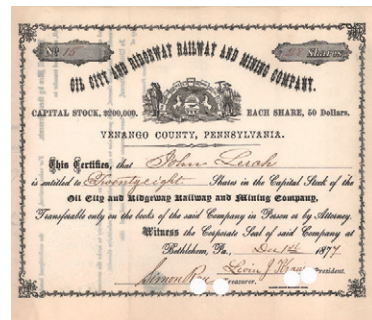 No. 15 Shares
OIL CITY AND RIDGEWAY RAILWAY AND MINING COMPANY.
CAPITAL STOCK, $200,000. EACH SHARE, 50 Dollars.
VENANGO COUNTY, PENNSYLVANIA.
This Certifies, that John
is entitled to Twentyeight Shares in the Capital Stock of the
Oil City and Ridgeway Railway and Mining Company,
Transferable only on the books of the said Company in Person or by Attorney.
Witness the Corporate Seal of said Company at
Bethlehem, Pa., Dec 1877
Simon Rau Levin J. President.
Treasurer.